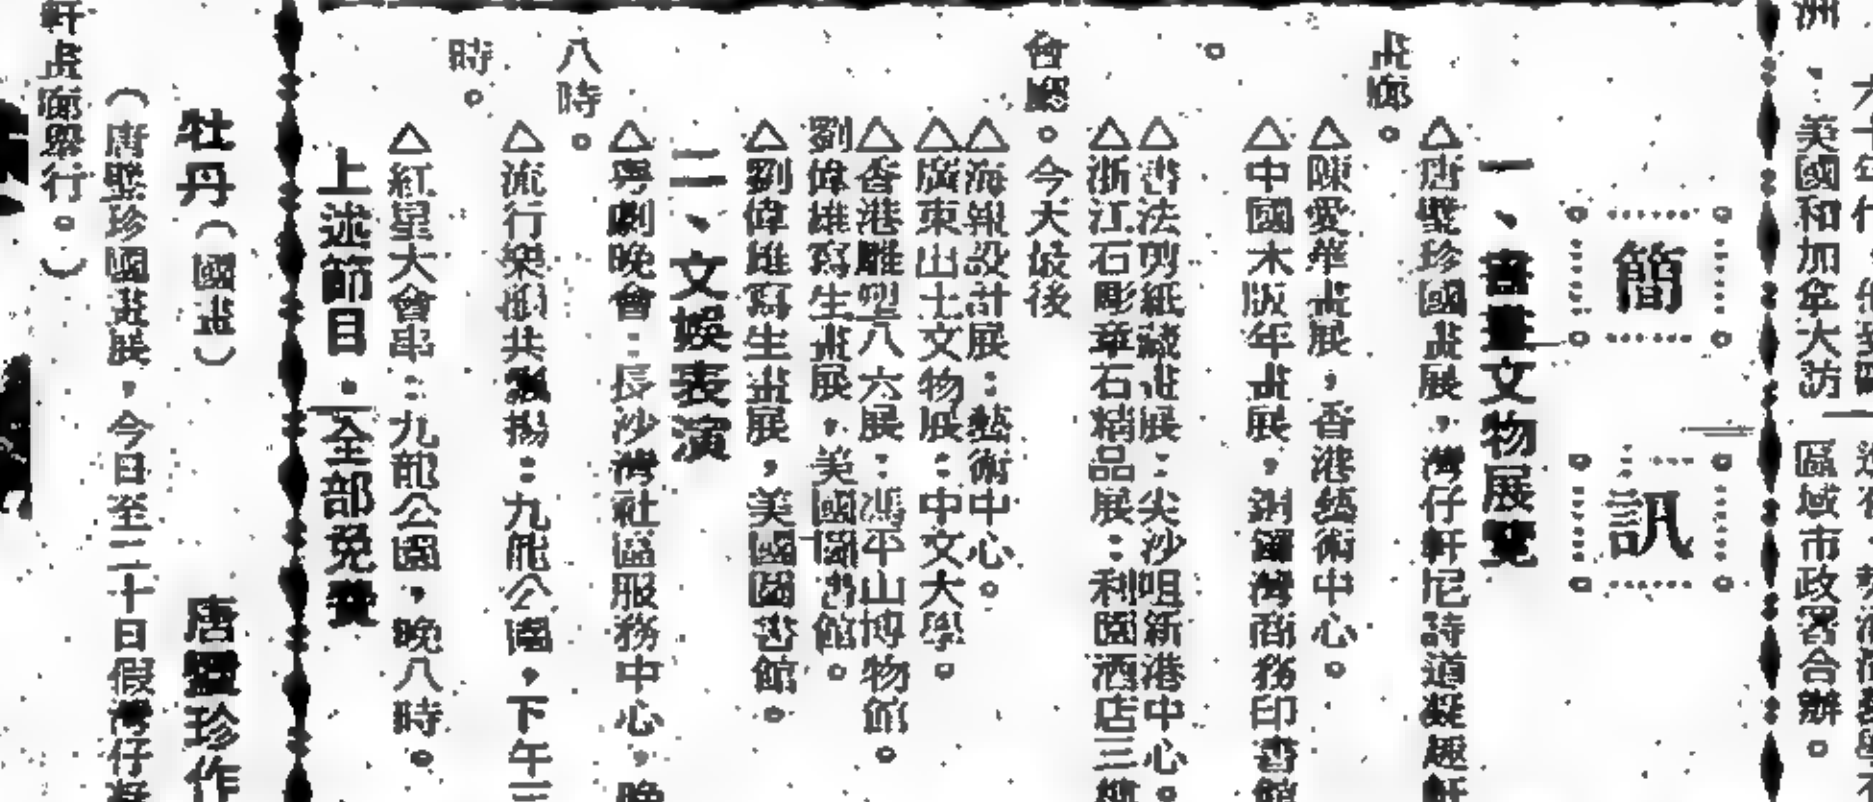 洲
美國和加拿大訪
區域市政署合辦。
簡訊
一、書畫文物展覽
△唐璧珍國畫展，灣仔軒尼詩道凝趣軒
畫廊。
△陳愛華畫展，香港藝術中心。
△中國木版年畫展，銅鑼灣商務印書館
。
△書法剪紙藏書展：尖沙咀新港中心。
△浙江石彫章石精品展：利園酒店三樓
會廳。今天最後
△海報設計展：藝術中心。
△廣東出土文物展：中文大學。
△香港雕塑八六展：馮平山博物館。
劉偉雄寫生畫展，美國圖書館。
△劉偉雄寫生畫展，美國圖書館。
二、文娛表演
△粵劇晚會：長沙灣社區服務中心，晚
八時。
△流行樂韻共飄揚：九龍公園，下午三
時。
△紅星大會串：九龍公園，晚八時。
上述節目，全部免費
牡丹（國畫）
唐璧珍作
（唐璧珍國畫展，今日至二十日假灣仔凝
軒畫廊舉行。）